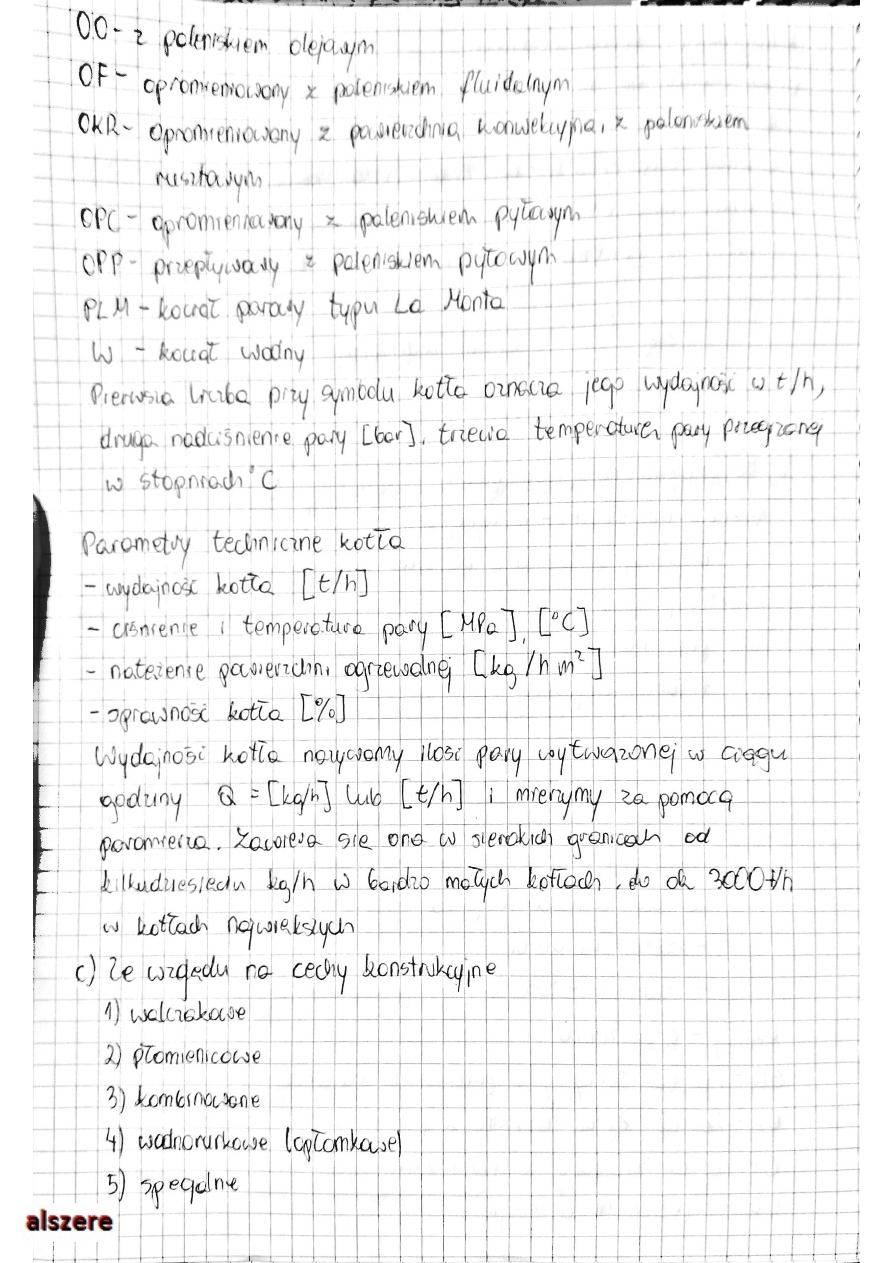 OO - z paleniskiem olejowym
OF - opromieniowany z paleniskiem fluidalnym
OKR - opromieniowany z powierzchnią konwekcyjną, z paleniskiem
rusztowym
OPC - opromieniowany z paleniskiem pyłowym
OPP - przepływowy z paleniskiem pyłowym
PLM - kocioł parowy typu La Monta
W - kocioł wodny
Pierwsza liczba przy symbolu kotła oznacza jego wydajność w t/h,
druga nadciśnienie pary [bar], trzecia temperaturę pary przegrzanej
w stopniach °C
Parametry techniczne kotła
- wydajność kotła [t/h]
- ciśnienie i temperatura pary [MPa], [°C]
- natężenie powierzchni ogrzewalnej [kg/h m²]
- sprawność kotła [%]
Wydajność kotła nazywamy ilość pary wytwarzonej w ciągu
godziny Q = [kg/h] lub [t/h] i mierzymy za pomocą
paromierza. Zawiera się ona w szerokich granicach od
kilkudziesięciu kg/h w bardzo małych kotłach, do ok 3000 t/h
w kotłach największych
c) Ze względu na cechy konstrukcyjne
1) walczakowe
2) płomienicowe
3) kombinowane
4) wodnorurkowe (opłomkowe)
5) specjalne
alszere